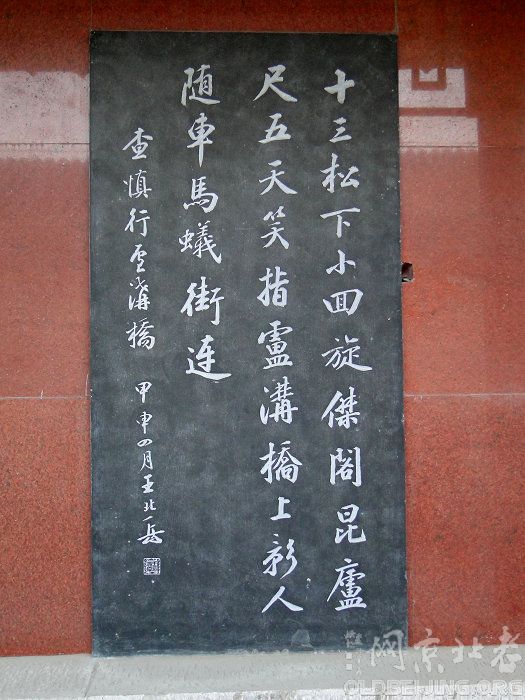 十三松下小回旋傑閣昆廬
尺五天笑指盧溝橋上影人
随車馬蟻街连
查慎行盧溝橋 甲申四月王北岳
网京北老
OLDBEIJING.ORG